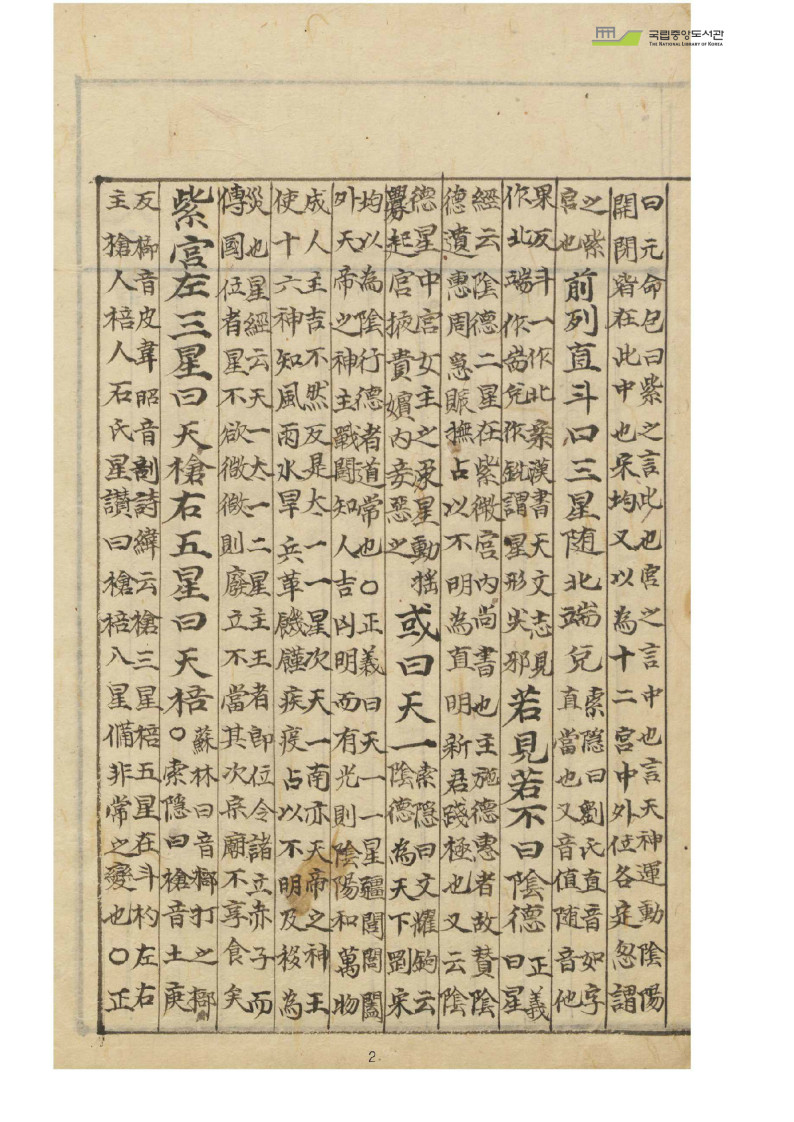 국립중앙도서관
THE NATIONAL LIBRARY OF KOREA
曰元命包曰紫之言此也宮之言中也言天神運動陰陽
開閉皆在此中也宋均又以為十二宮中外位各定忽謂
之紫
宮也
前列直斗口三星随北端兌
索隱曰劉氏直音如字
直當也又音值随音他
果反斗一作北案漢書天文志見
作北端作耑兌作銳謂星形尖邪
若見若不曰陰德
正義
曰星
經云陰德二星在紫微宮內尚書也主施德惠者故賛陰
德遺惠周急賑撫占以不明為直明新君踐極也又云陰
德星中宮女主之象星動搖
釁起宮掖貴嬪內妾惡之
或曰天一
索隱曰文耀鉤云
陰德為天下剛宋
均以為陰行德者道常也〇正義曰天一一星疆閶閭闔
外天帝之神主戰鬪知人吉凶明而有光則陰陽和萬物
成人主吉不然反是太一一星次天一南亦天帝之神主
使十六神知風雨水旱兵革饑饉疾疫占以不明及移為
災也星經云天一太一二星主王者即位令諸立赤子而
傳國位者星不欲微微則廢立不當其次宗廟不享食矣
紫宮左三星曰天槍右五星曰天棓
蘇林曰音榔打之榔
〇索隱曰槍音士庚
反棓音皮韋昭音剖詩緯云槍三星棓五星在斗杓左右
主槍人棓人石氏星讃曰槍棓八星備非常之變也〇正
2